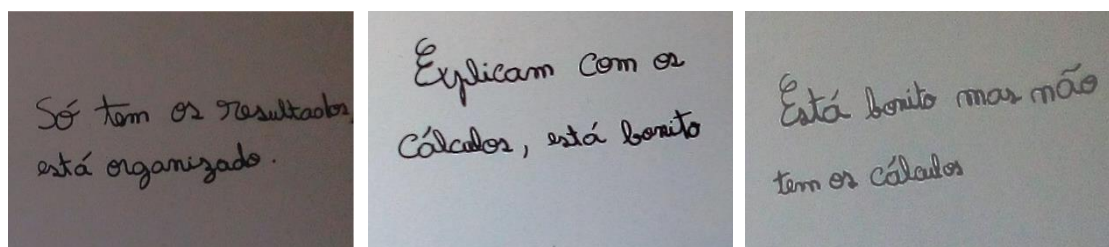 Só tem os resultados,
está organizado.
Explicam com os
cálculos, está bonito
Está bonito mas não
tem os cálculos